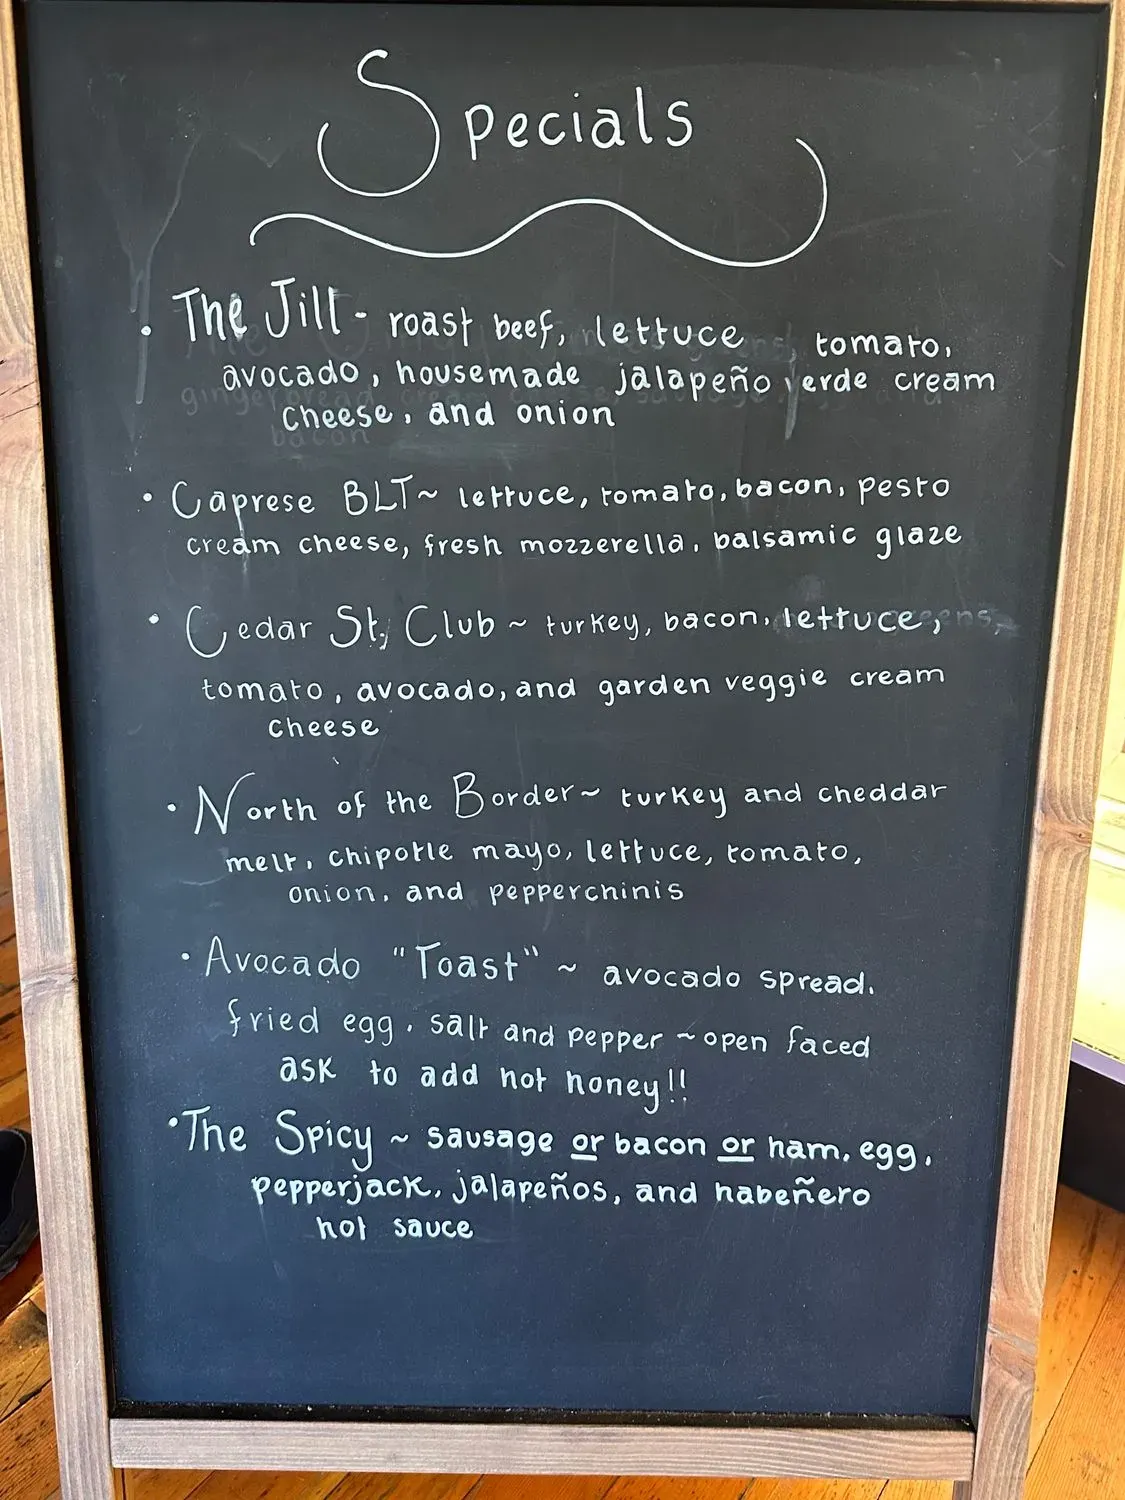 Specials
• The Jill - roast beef, lettuce tomato,
avocado, housemade jalapeño verde cream
cheese, and onion
• Caprese BLT ~ lettuce, tomato, bacon, pesto
cream cheese, fresh mozzerella, balsamic glaze
• Cedar St. Club ~ turkey, bacon, lettuce,
tomato, avocado, and garden veggie cream
cheese
• North of the Border ~ turkey and cheddar
melt, chipotle mayo, lettuce, tomato,
onion, and pepperchinis
• Avocado "Toast" ~ avocado spread,
fried egg, salt and pepper ~ open faced
ask to add hot honey!!
• The Spicy ~ sausage or bacon or ham, egg,
pepperjack, jalapeños, and habeñero
hot sauce